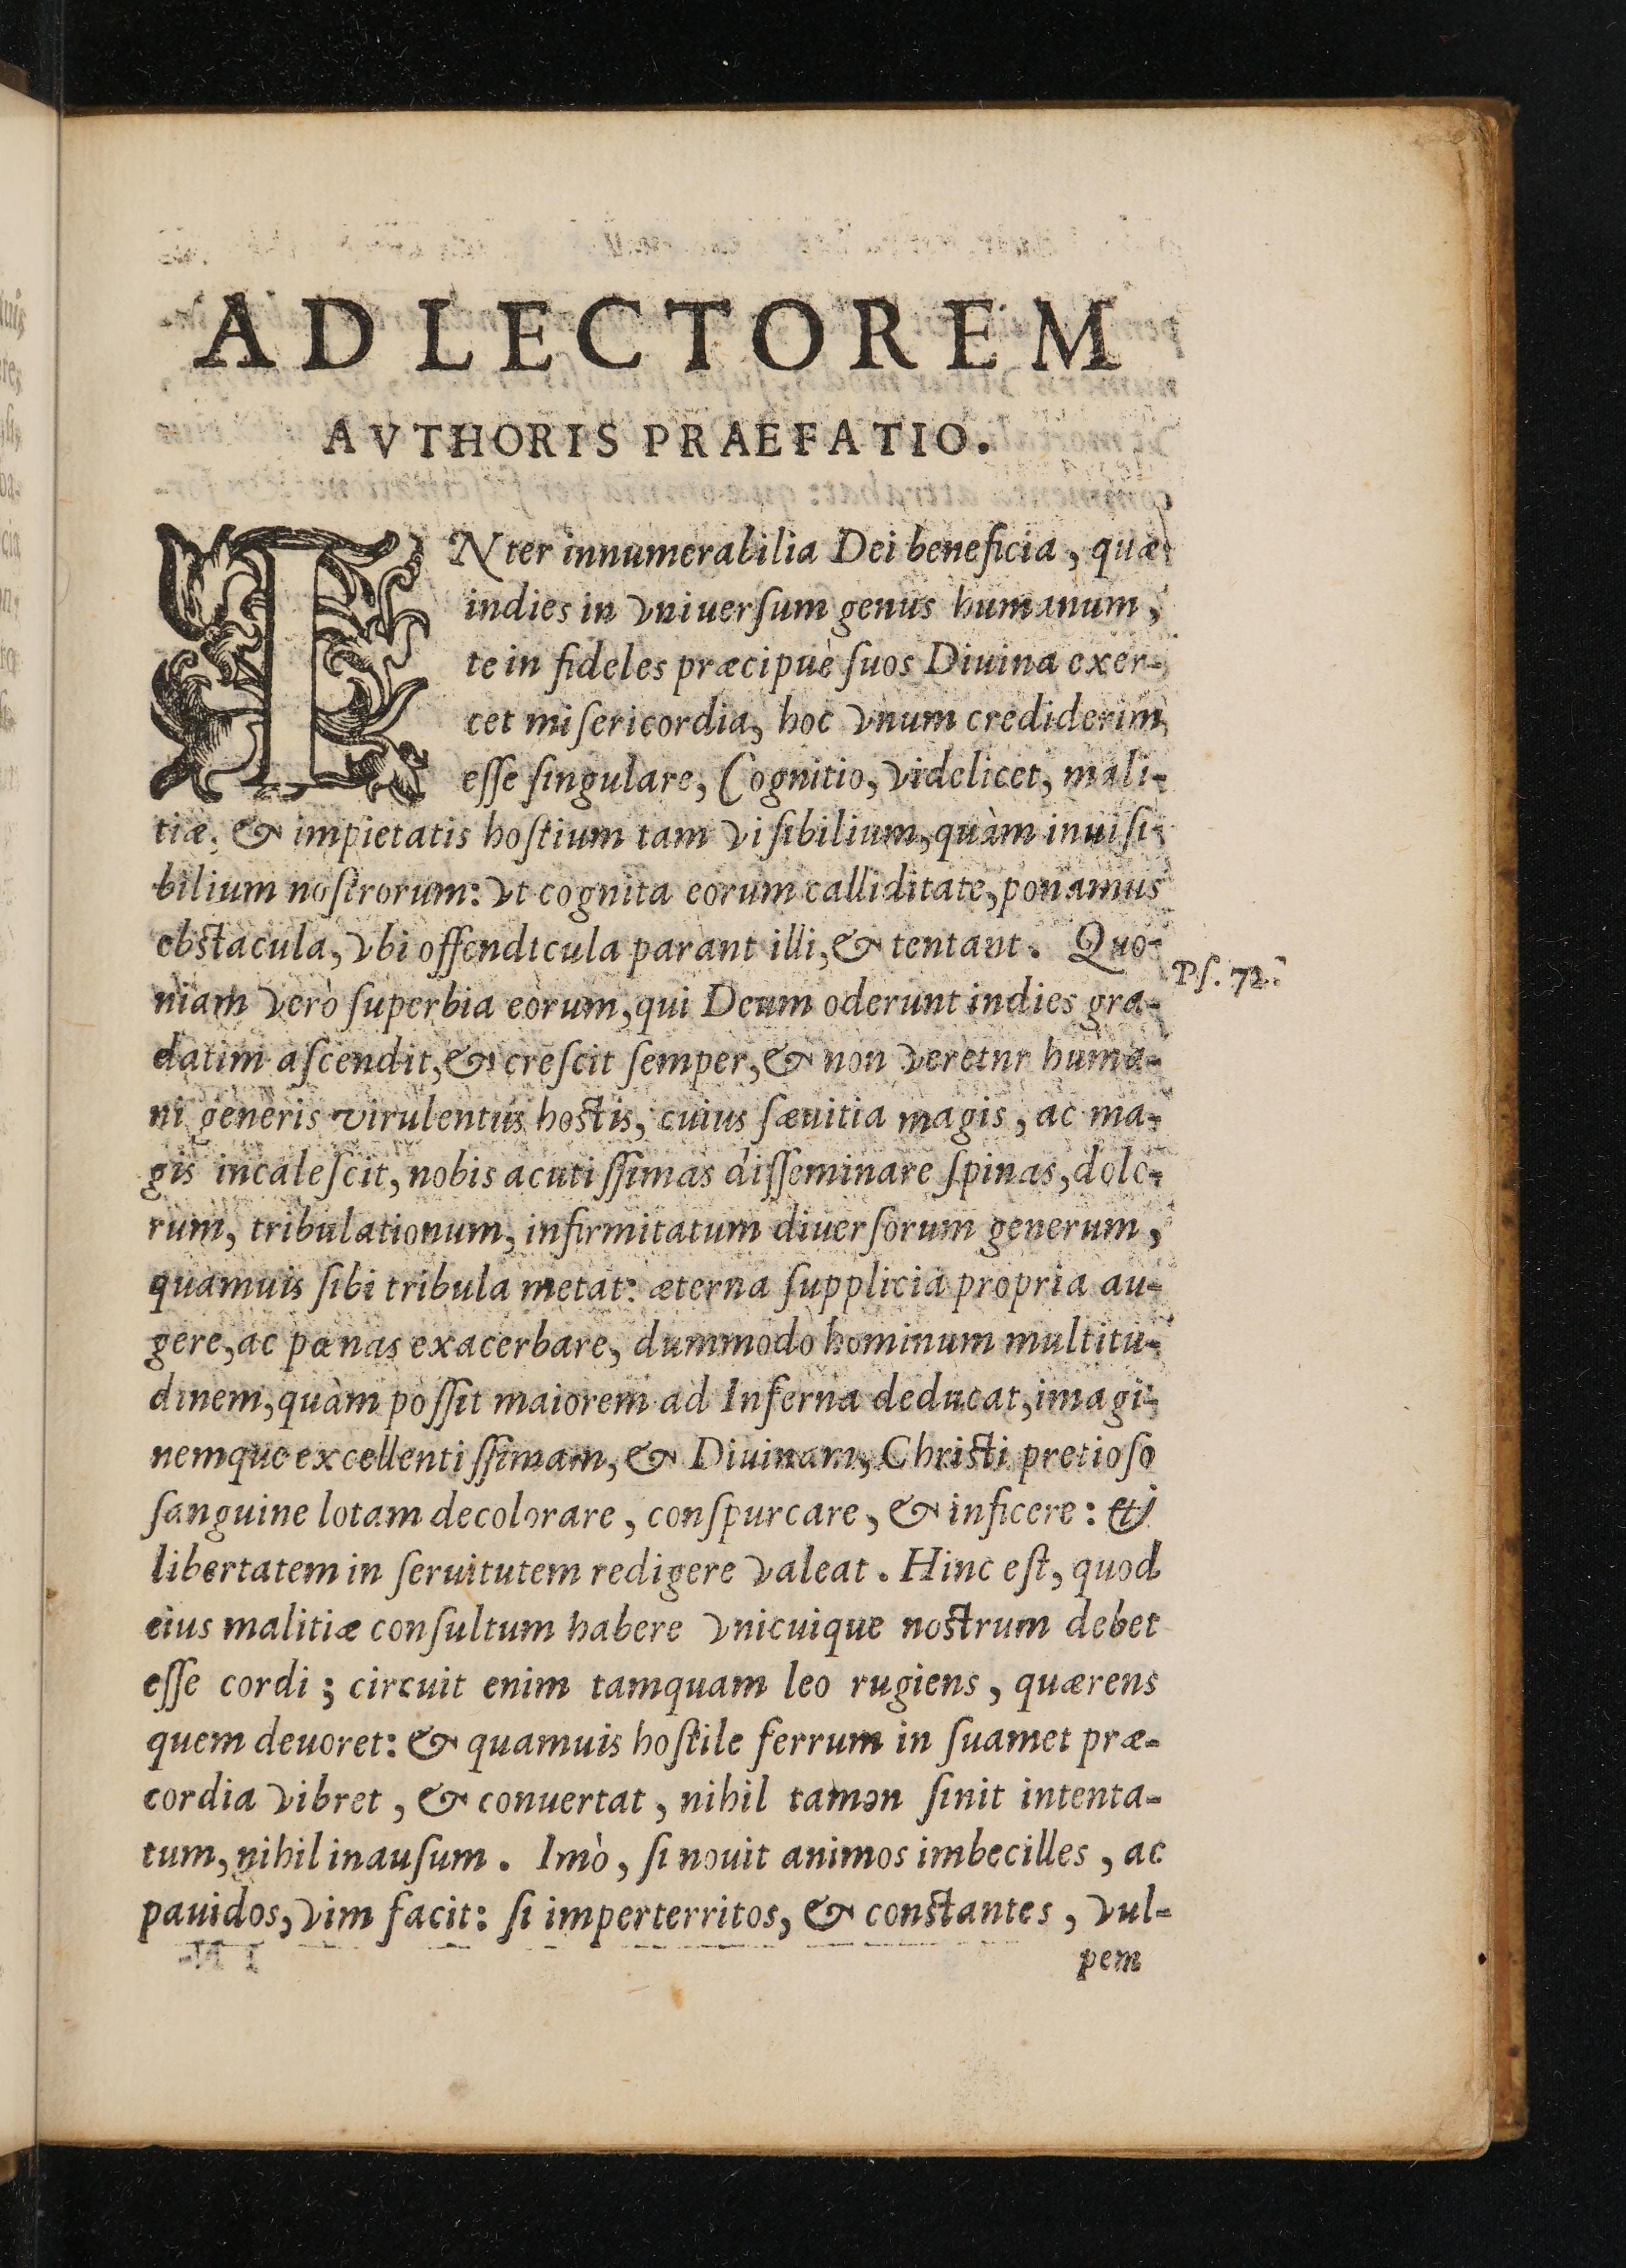 AD LECTOREM
AVTHORIS PRAEFATIO.
INter innumerabilia Dei beneficia, quæ
indies in vniuerſum genus humanum,
te in fideles præcipuè ſuos Diuina exer-
cet miſericordia, hoc vnum crediderim
eſſe ſingulare, Cognitio, videlicet, mali-
tiæ, & impietatis hoſtium tam viſibilium, quàm inuiſi-
bilium noſtrorum: vt cognita eorum calliditate, ponamus
obſtacula, vbi offendicula parant illi, & tentant. Quo-
Pſ. 72.
niam verò ſuperbia eorum, qui Deum oderunt indies gra-
datim aſcendit, & creſcit ſemper, & non veretnr huma-
ni generis virulentus hoſtis, cuius ſæuitia magis, ac ma-
gis incaleſcit, nobis acutiſſimas diſſeminare ſpinas, dolo-
rum, tribulationum, infirmitatum diuerſorum generum,
quamuis ſibi tribula metat: æterna ſupplicia propria au-
gere, ac pœnas exacerbare, dummodo hominum multitu-
dinem, quàm poſſit maiorem ad Inferna deducat, imagi-
nemque excellentiſſimam, & Diuinam, Chriſti pretioſo
ſanguine lotam decolorare, conſpurcare, & inficere: &
libertatem in ſeruitutem redigere valeat. Hinc eſt, quod
eius malitiæ conſultum habere vnicuique noſtrum debet
eſſe cordi; circuit enim tamquam leo rugiens, quærens
quem deuoret: & quamuis hoſtile ferrum in ſuamet præ-
cordia vibret, & conuertat, nihil tamǝn ſinit intenta-
tum, nihil inauſum. Imò, ſi nouit animos imbecilles, ac
pauidos, vim facit: ſi imperterritos, & conſtantes, vul-
pem